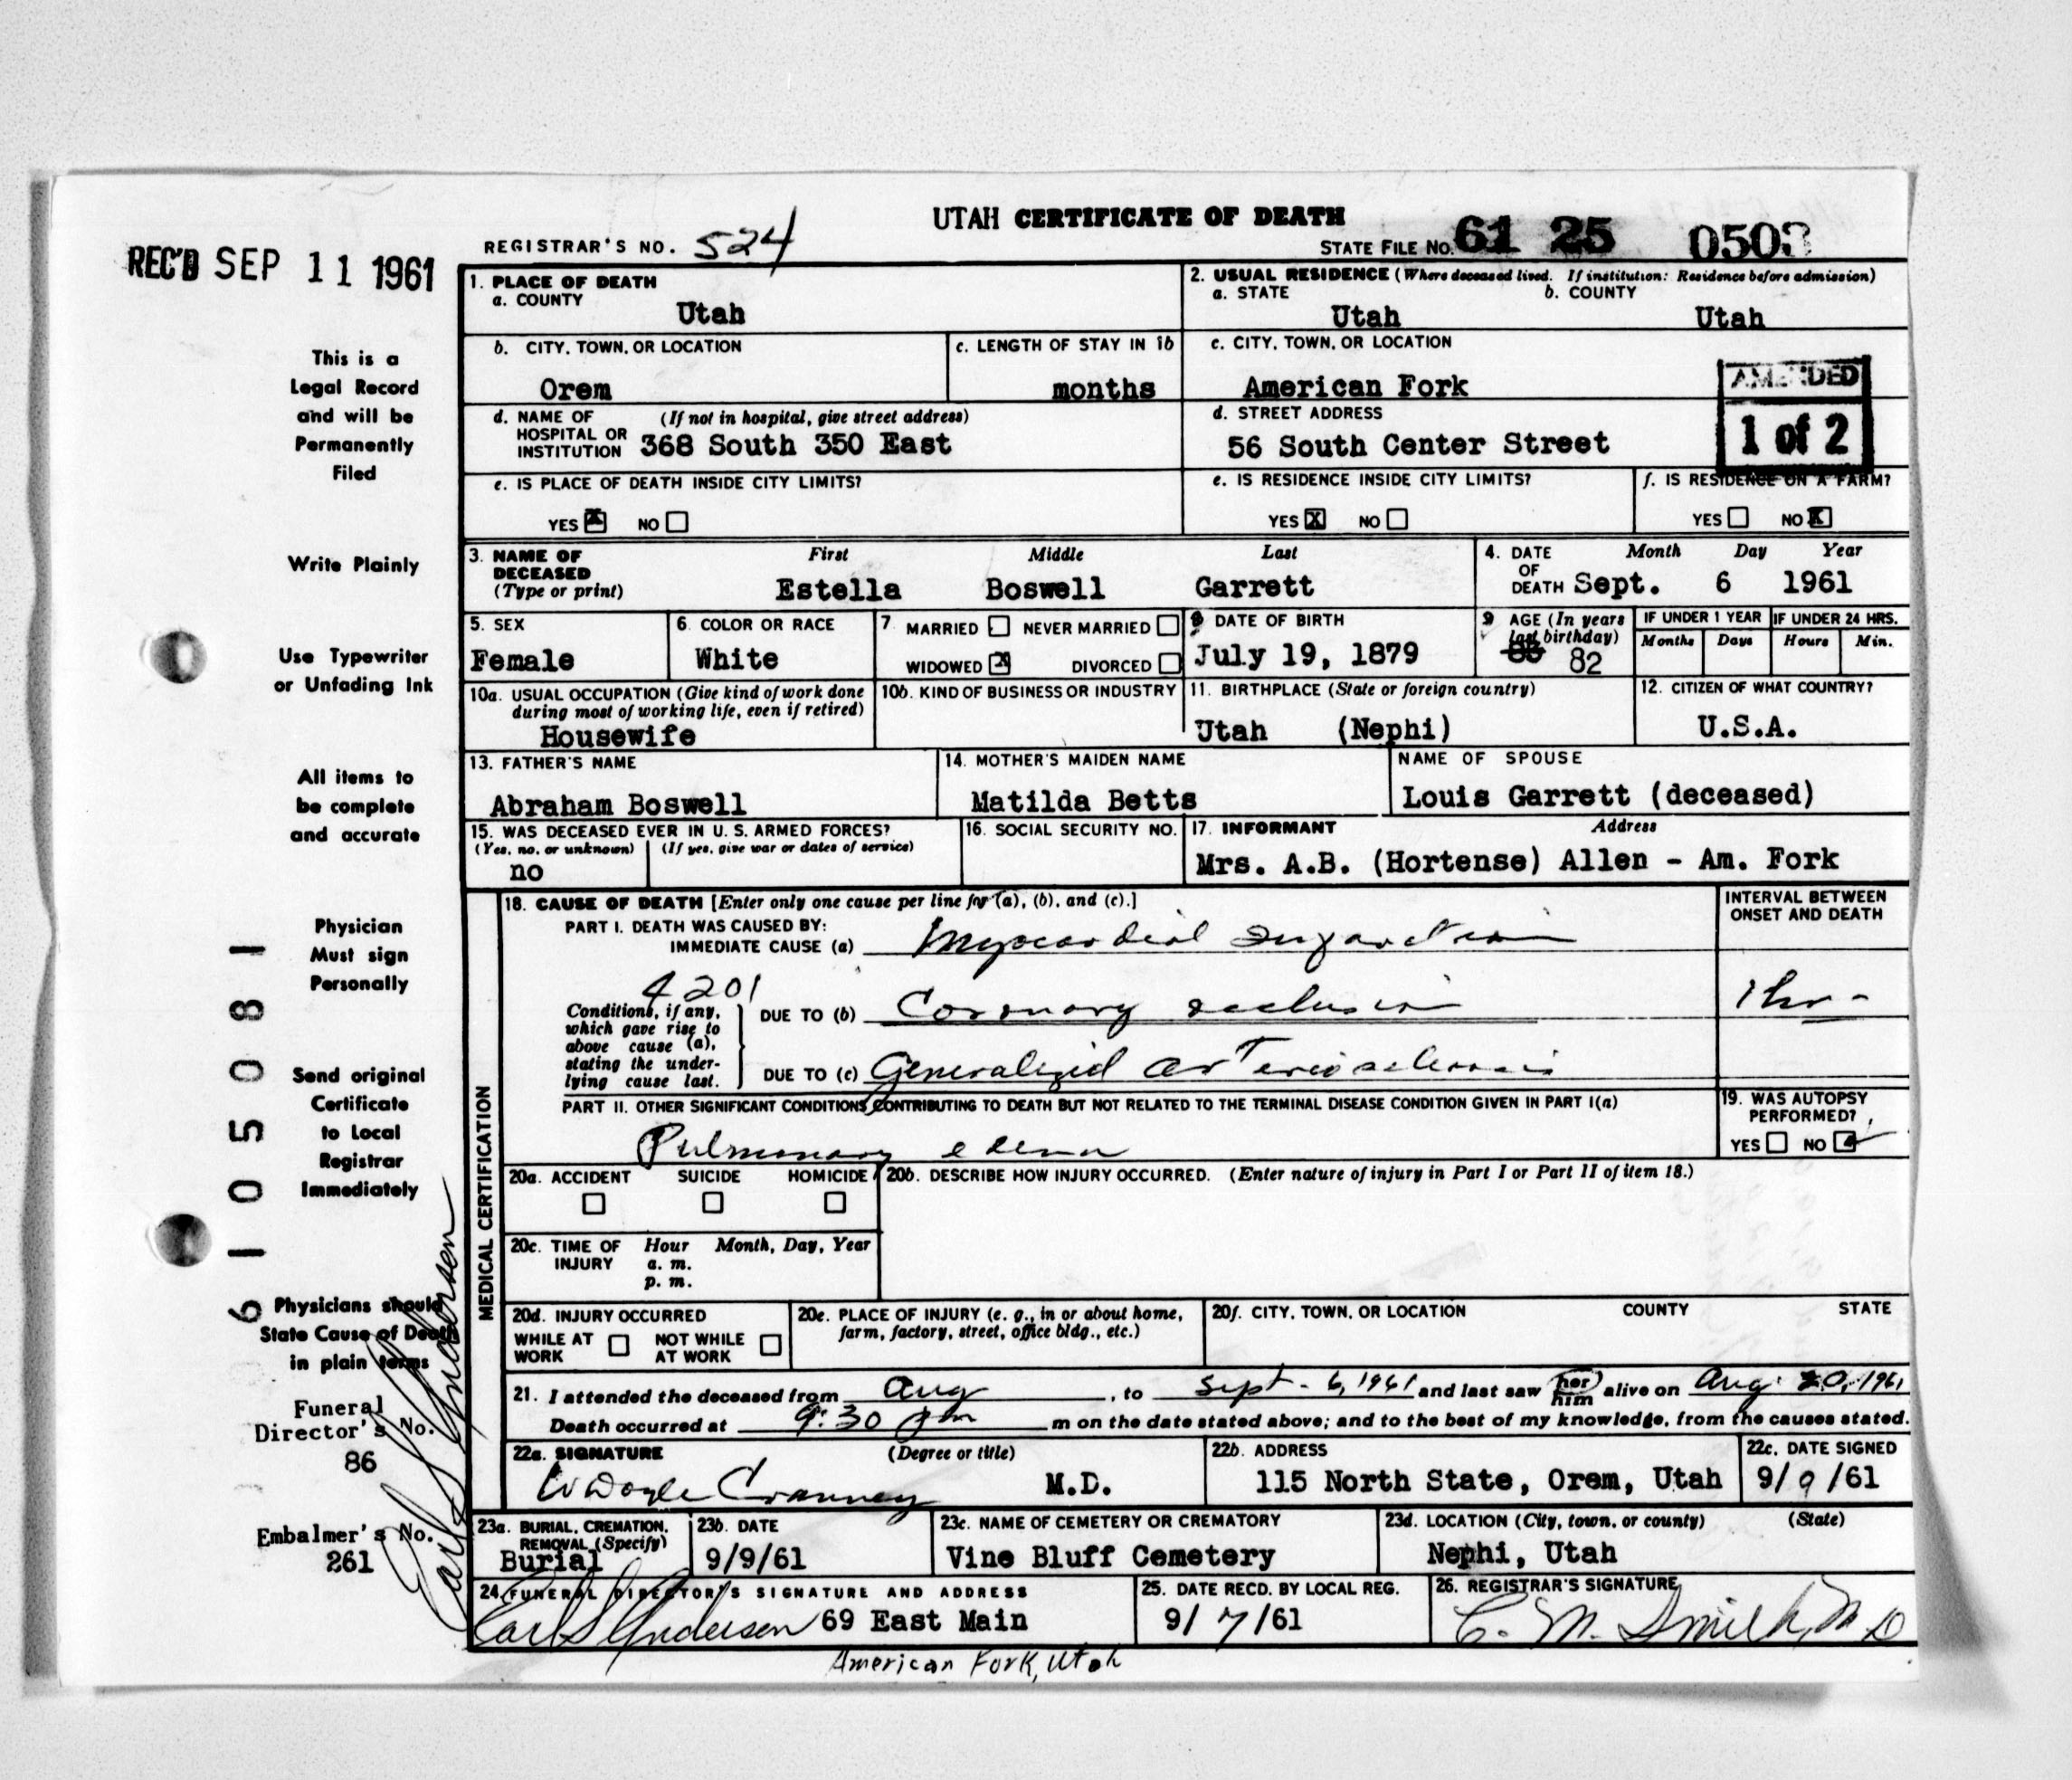 UTAH CERTIFICATE OF DEATH
REC'D SEP 11 1961
REGISTRAR'S NO. 524
STATE FILE No. 61 25 0503
1. PLACE OF DEATH
a. COUNTY
Utah
2. USUAL RESIDENCE (Where deceased lived. If institution: Residence before admission)
a. STATE b. COUNTY
Utah Utah
b. CITY, TOWN, OR LOCATION
Orem
c. LENGTH OF STAY IN 1b
months
c. CITY, TOWN, OR LOCATION
American Fork
AMENDED
1 of 2
d. NAME OF (If not in hospital, give street address)
HOSPITAL OR
INSTITUTION 368 South 350 East
d. STREET ADDRESS
56 South Center Street
e. IS PLACE OF DEATH INSIDE CITY LIMITS?
YES X NO
e. IS RESIDENCE INSIDE CITY LIMITS?
YES X NO
f. IS RESIDENCE ON A FARM?
YES NO X
3. NAME OF First Middle Last
DECEASED
(Type or print) Estella Boswell Garrett
4. DATE Month Day Year
OF
DEATH Sept. 6 1961
5. SEX
Female
6. COLOR OR RACE
White
7. MARRIED NEVER MARRIED
WIDOWED X DIVORCED
8 DATE OF BIRTH
July 19, 1879
9 AGE (In years
last birthday)
83 82
IF UNDER 1 YEAR IF UNDER 24 HRS.
Months Days Hours Min.
10a. USUAL OCCUPATION (Give kind of work done
during most of working life, even if retired)
Housewife
10b. KIND OF BUSINESS OR INDUSTRY
11. BIRTHPLACE (State or foreign country)
Utah (Nephi)
12. CITIZEN OF WHAT COUNTRY?
U.S.A.
13. FATHER'S NAME
Abraham Boswell
14. MOTHER'S MAIDEN NAME
Matilda Betts
NAME OF SPOUSE
Louis Garrett (deceased)
15. WAS DECEASED EVER IN U. S. ARMED FORCES?
(Yes, no, or unknown) (If yes, give war or dates of service)
no
16. SOCIAL SECURITY NO.
17. INFORMANT Address
Mrs. A.B. (Hortense) Allen - Am. Fork
MEDICAL CERTIFICATION
18. CAUSE OF DEATH [Enter only one cause per line for (a), (b), and (c).]
INTERVAL BETWEEN
ONSET AND DEATH
PART I. DEATH WAS CAUSED BY:
IMMEDIATE CAUSE (a) Myocardial Infarction
4201
Conditions, if any,
which gave rise to
above cause (a),
stating the under-
lying cause last.
DUE TO (b) Coronary occlusion
1 hr-
DUE TO (c) Generalized arteriosclerosis
PART II. OTHER SIGNIFICANT CONDITIONS CONTRIBUTING TO DEATH BUT NOT RELATED TO THE TERMINAL DISEASE CONDITION GIVEN IN PART I(a)
Pulmonary edema
19. WAS AUTOPSY
PERFORMED?
YES NO
20a. ACCIDENT SUICIDE HOMICIDE
20b. DESCRIBE HOW INJURY OCCURRED. (Enter nature of injury in Part I or Part II of item 18.)
20c. TIME OF Hour Month, Day, Year
INJURY a. m.
p. m.
20d. INJURY OCCURRED
WHILE AT NOT WHILE
WORK AT WORK
20e. PLACE OF INJURY (e. g., in or about home,
farm, factory, street, office bldg., etc.)
20f. CITY, TOWN, OR LOCATION COUNTY STATE
21. I attended the deceased from Aug , to Sept - 6, 1961 and last saw her him alive on Aug 20, 1961
Death occurred at 9:30 pm m on the date stated above; and to the best of my knowledge, from the causes stated.
22a. SIGNATURE (Degree or title)
W Doyle Cranney M.D.
22b. ADDRESS
115 North State, Orem, Utah
22c. DATE SIGNED
9/9/61
23a. BURIAL, CREMATION,
REMOVAL (Specify)
Burial
23b. DATE
9/9/61
23c. NAME OF CEMETERY OR CREMATORY
Vine Bluff Cemetery
23d. LOCATION (City, town, or county) (State)
Nephi, Utah
24. FUNERAL DIRECTOR'S SIGNATURE AND ADDRESS
Earl S Anderson 69 East Main
American Fork, Utah
25. DATE RECD. BY LOCAL REG.
9/7/61
26. REGISTRAR'S SIGNATURE
C. M. Smith, M D
This is a
Legal Record
and will be
Permanently
Filed
Write Plainly
Use Typewriter
or Unfading Ink
All items to
be complete
and accurate
Physician
Must sign
Personally
Send original
Certificate
to Local
Registrar
Immediately
Physicians should
State Cause of Death
in plain terms
Funeral
Director's No.
86
Embalmer's No.
261
61 05081
Earl S Anderson